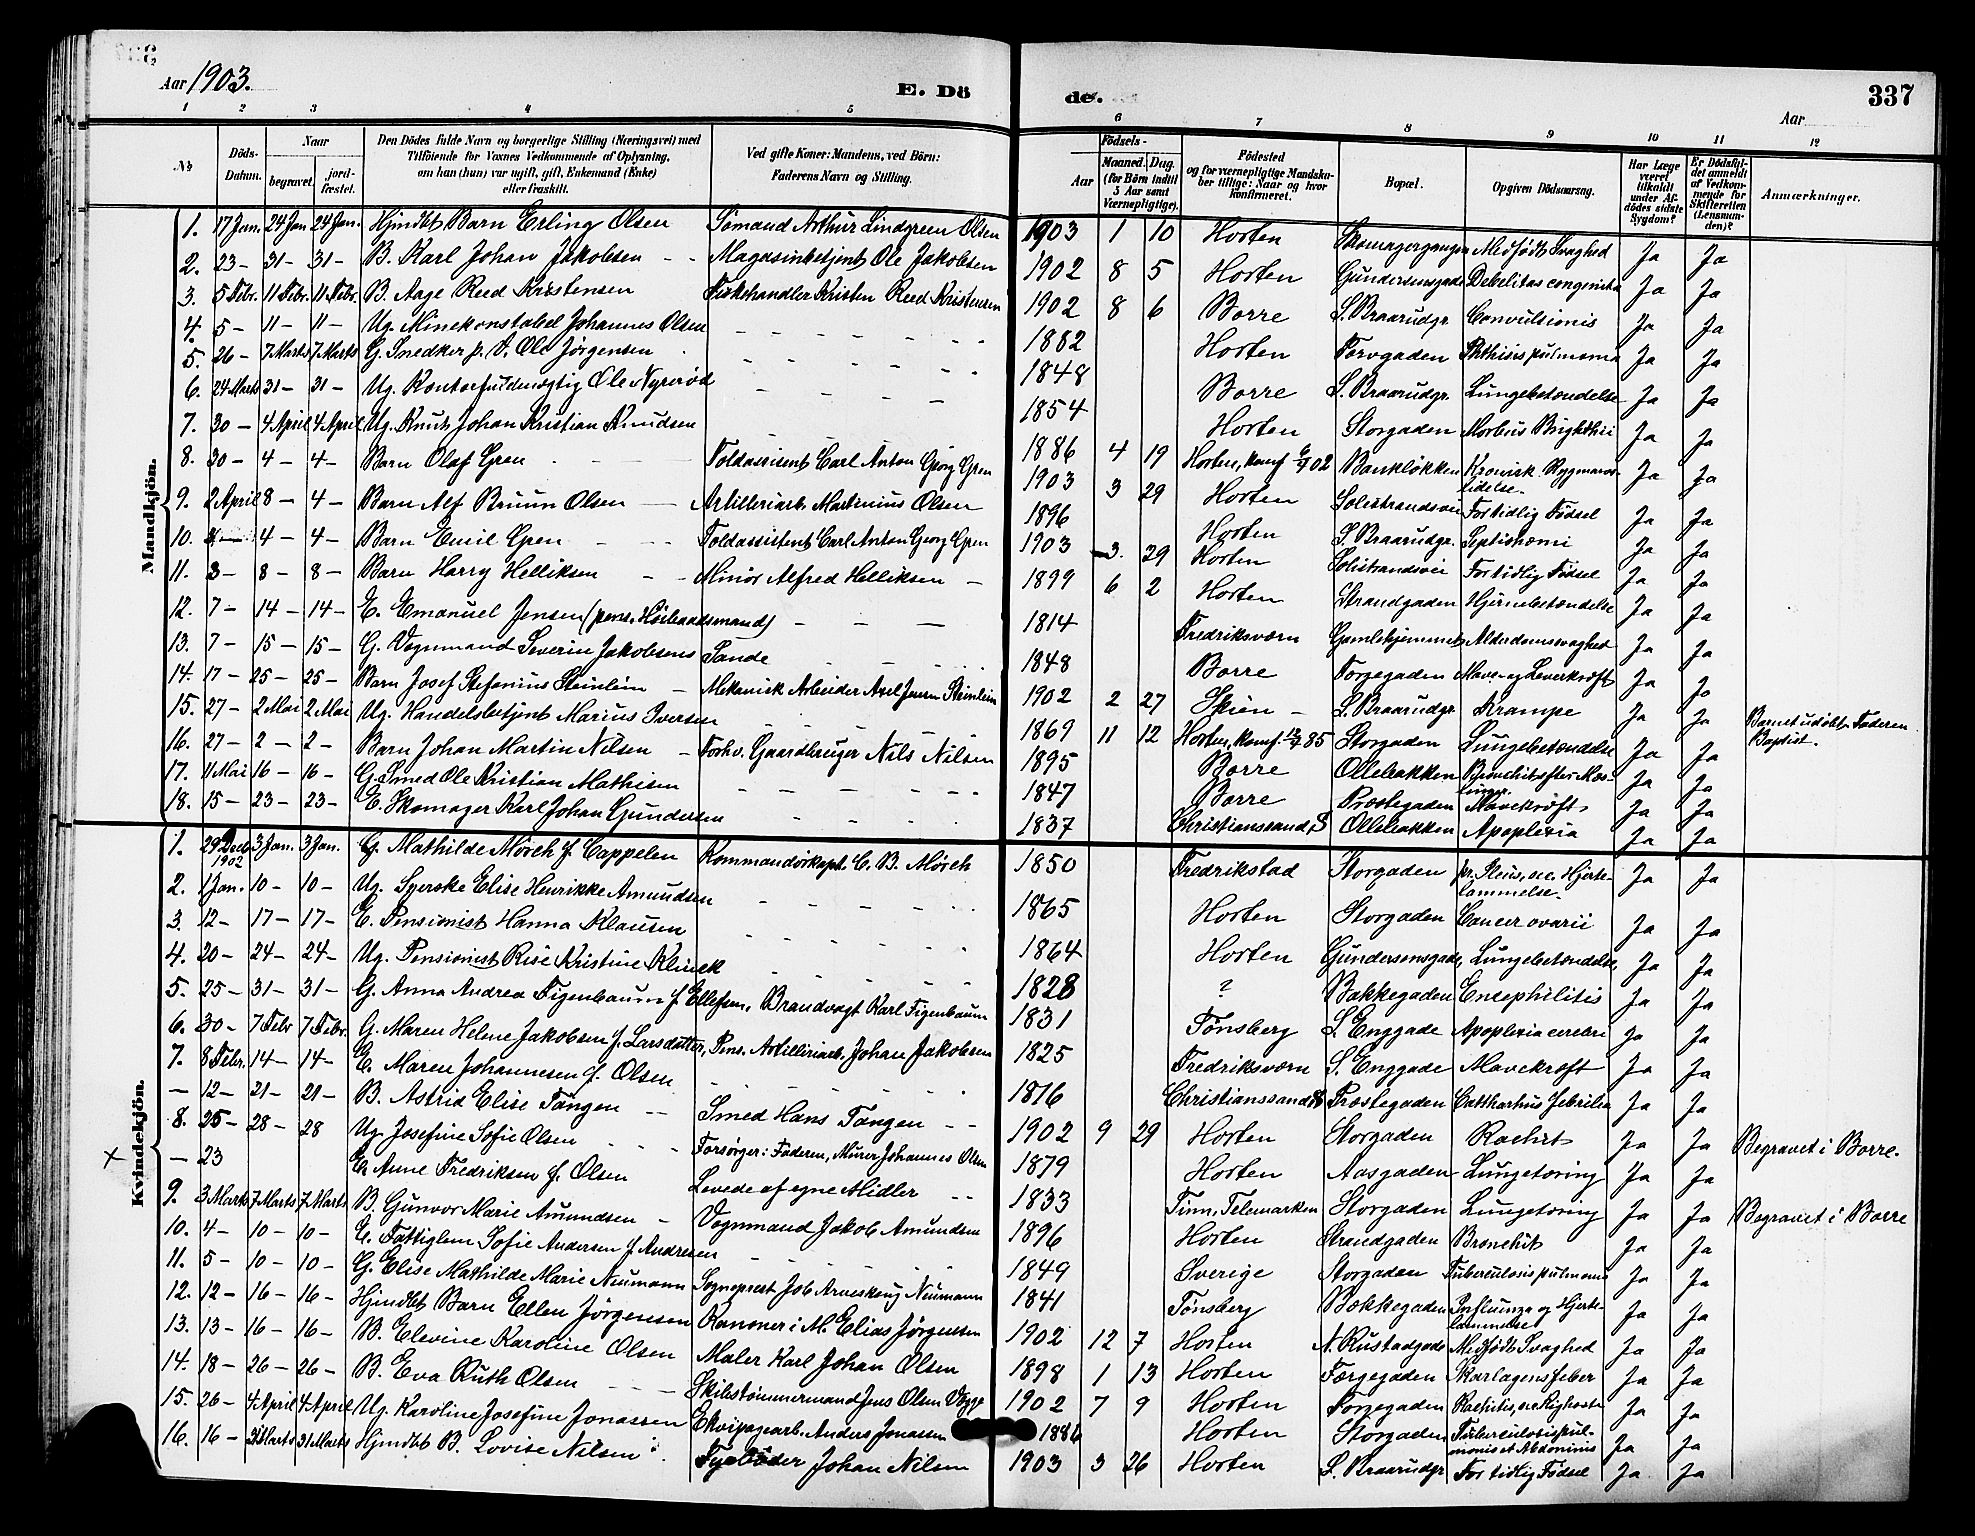 Aar 1903.
E. Dö
de.
337
Aar
1 2 3 4 5 6 7 8 9 10 11 12
№
Döds-Datum.
Naar
begravet.
jord-fæstet.
Den Dödes fulde Navn og borgerlige Stilling (Næringsvei) med Tilföiende for Voxnes Vedkommende af Oplysning, om han (hun) var ugift, gift, Enkemand (Enke) eller fraskilt.
Ved gifte Koner: Mandens, ved Börn: Faderens Navn og Stilling.
Födsels-
Aar
Maaned. Dag. (for Börn indtil 5 Aar samt Værnepligtige).
Födested og for værnepligtige Mandskaber tillige: Naar og hvor konfirmeret.
Bopæl.
Opgiven Dödsaarsag.
Har Læge været tilkaldt under Afdödes sidste Sygdom?
Er Dödsfaldet anmeldt af Vedkommende for Skifteretten (Lensmanden)?
Anmærkninger.
Mandkjön.
1. 17 Jan. 24 Jan 24 Jan. Hjmdbt Barn Erling Olsen Sømand Arthur Lindgreen Olsen 1903 1 10 Horten Skomagergangen Medfødt Svaghed Ja Ja
2. 23 – 31 – 31 – B. Karl Johan Jakobsen – – Magasinbetjent Ole Jakobsen 1902 8 5 Horten Gundersensgade Debilitas congenita Ja Ja
3. 5 Febr. 11 Febr. 11 Febr. B. Aage Reed Kristensen Fiskehandler Kristen Reed Kristensen 1902 8 6 Borre S. Braarudgr. Convulsionis Ja Ja
4. 5 – 11 – 11 – Ug. Minekonstabel Johannes Olsen 1882 Horten Torvgaden Phthisis pulmonum Ja Ja
5. 26 – 7 Marts 7 Marts G. Snedker p. V. Ole Jørgensen 1848 Borre S. Braarudgr. Lungebetændelse Ja Ja
6. 24 Marts 31 – 31 – Ug. Kontorfuldmægtig Ole Nyrerød 1854 Horten Storgaden Morbus Brightii Ja Ja
7. 30 – 4 April 4 April Ug. Knut Johan Kristian Knudsen 1886 4 19 Horten, konf. 6/4 02 Bankløkken Kronisk Rygmarvslidelse. Ja Ja
8. 30 – 4 – 4 – Barn Olaf Gren Toldassistent Carl Anton Georg Gren 1903 3 29 Horten Solistrandsvei For tidlig Fødsel Ja Ja
9. 2 April 8 – 4 – Barn Alf Bruun Olsen Artilleriarb. Martinius Olsen 1896 Horten S. Braarudgr. Septichæmi Ja Ja
10. 4 – 4 – 4 – Barn Emil Gren Toldassistent Carl Anton Georg Gren 1903 3. 29 Horten Solistrandsvei For tidlig Fødsel Ja Ja
11. 3 – 8 – 8 – Barn Harry Helliksen – – Minör Alfred Helliksen – 1899 6 2 Horten Strandgaden Hjernebetændelse Ja Ja
12. 7 – 14 – 14 – E. Emanuel Jensen (pens. Høibaadsmand) 1814 Fredriksværn Gamlehjemmet Alderdomssvaghed Ja Ja
13. 7 – 15 – 15 – G. Vognmand Severin Jakobsens Sande 1848 Borre Torvegaden Mave- og Leverkræft Ja Ja
14. 17 – 25 – 25 – Barn Josef Stefanius Steinlein – Mekanisk Arbeider Axel Steinlein 1902 2 27 Skien – S. Braarudgr Krampe Ja Ja Barnet udøbt. Faderen Baptist.
15. 27 – 2 Mai 2 Mai Ug. Handelsbetjent Marius Iversen 1869 11 12 Horten, konf. 12/4 85 Storgaden Lungebetændelse Ja Ja
16. 27 – 2 – 2 – Barn Johan Martin Nilsen – Forhv. Gaardbruger Nils Nilsen 1895 Borre Ollebakken Bronchit efter Meslinger. Ja Ja
17. 11 Mai 16 – 16 – G. Smed Ole Kristian Mathisen 1847 Borre Præstegaden Mavekræft Ja Ja
18. 15 – 23 – 23 – E. Skomager Karl Johan Gundersen 1837 Christianssand S Ollebakken Apoplexia Ja Ja
Kvindekjön.
1. 29 Decb 1902 3 Jan. 3 Jan. G. Mathilde Mörch f. Cappelen Kommandörkapt. C. B. Mörch 1850 Fredrikstad Storgaden Hjertelammelse. Ja Ja
2. 1 Jan. 10 – 10 – Ug. Syerske Elise Henrikke Amundsen 1865 Horten Storgaden Cancer ovarii Ja Ja
3. 12 – 17 – 17 – E. Pensionist Hanna Klausen 1864 Horten Gundersensgade, Lungebetændelse, Ja Ja
4. 20 – 24 – 24 – Ug. Pensionist Rise Kristine Klinck 1828 ? Bakkegaden Encephilitis Ja Ja
5. 25 – 31 – 31 – G. Anna Andrea Figenbaum f. Ellefsen, Brandvagt Karl Figenbaum 1831 Tønsberg S. Enggade Apoplexia cerebri Ja Ja
6. 30 – 7 Febr 7 Febr. G. Maren Helene Jakobsen f. Larsdatter, Pens. Artilleriarb. Johan Jakobsen 1825 Fredriksværn S. Enggade Mavekræft Ja Ja
7. 8 Febr. 14 – 14 – E. Maren Johannesen f. Olsen 1816 Christianssand S Præstegaden Cattharhus febrilis Ja Ja
– 12 – 21 – 21 – B. Astrid Elise Tangen – – Smed Hans Tangen – – 1902 9 29 Horten Storgaden Rachit Ja Ja Begravet i Borre.
8. 25 – 28 – 28 Ug. Josefine Sofie Olsen Forsørger: Faderen, Murer Johannes Olsen 1879 Horten Aasgaden Lungetæring Ja Ja
× – 23 E. Anne Fredriksen f. Olsen Levede af egne Midler – – 1833 Tinn, Telemarken Storgaden Lungetæring Ja Ja Begravet i Borre
9. 3 Marts 7 Marts 7 Marts B. Gunvor Marie Amundsen – Vognmand Jakob Amundsen 1896 Horten Strandgaden Bronchit Ja Ja
10. 4 – 10 – 10 – E. Fattiglem Sofie Andersen f. Andresen 1849 Sverige Storgaden Tuberculosis pulmonum Ja Ja
11. 5 – 10 – 10 – G. Elise Mathilde Marie Neumann Sogneprest Job Neumann 1841 Tønsberg Bækkegaden Influenza og Hjertelammelse Ja Ja
12. 12 – 16 – 16 – Hjmdbt Barn Ellen Jørgensen Kanoner i M. Elias Jørgensen 1902 12 7 Horten N. Rustadgade Medfødt Svaghed Ja Ja
13. 13 – 16 – 16 – B. Elevine Karoline Olsen Maler Karl Johan Olsen 1898 1 13 Horten Færgegaden Skarlagensfeber Ja Ja
14. 18 – 26 – 26 – B. Eva Ruth Olsen – – – Skibstømmermand Jens Olsen Vegge 1902 7 9 Horten Torgegaden Rachitis, Kighoste Ja Ja
15. 26 – 4 April 4 April Ug. Karoline Josefine Jonassen Ekvipagearb. Anders Jonassen 1886 Horten Storgaden Tuberculosis pulmonis et Abdominis Ja Ja
16. 16 – 31 Marts 31 Marts Hjmdbt B. Lovise Nilsen Fyrbøder Johan Nilsen 1903 3 26 Horten S. Braarudgr For tidlig Fødsel Ja Ja